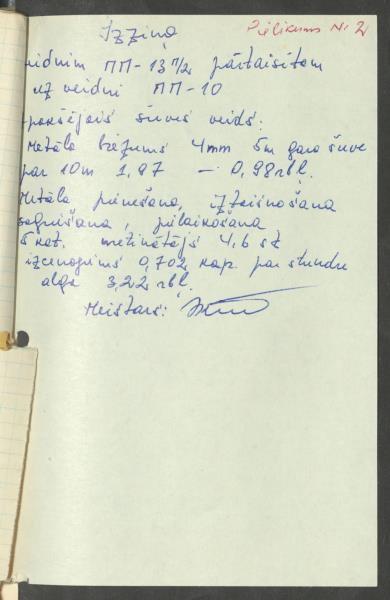 Izziņa
Pielikums Nr 2
veidnim ПП-13 п/2 pārtaisītam
uz veidni ПП-10
šuves veids:
Metāla biezums 4mm 5m gara šuve
par 10m 1,97 — 0,98 rbl.
Metāla pienešana, iztaisnošana
sagriešana, pielaikošana
5 kat. metinātājs 4,6 st
izcenojums 0,702 kap. par stundu
alga 3,22 rbl.
Meistars: